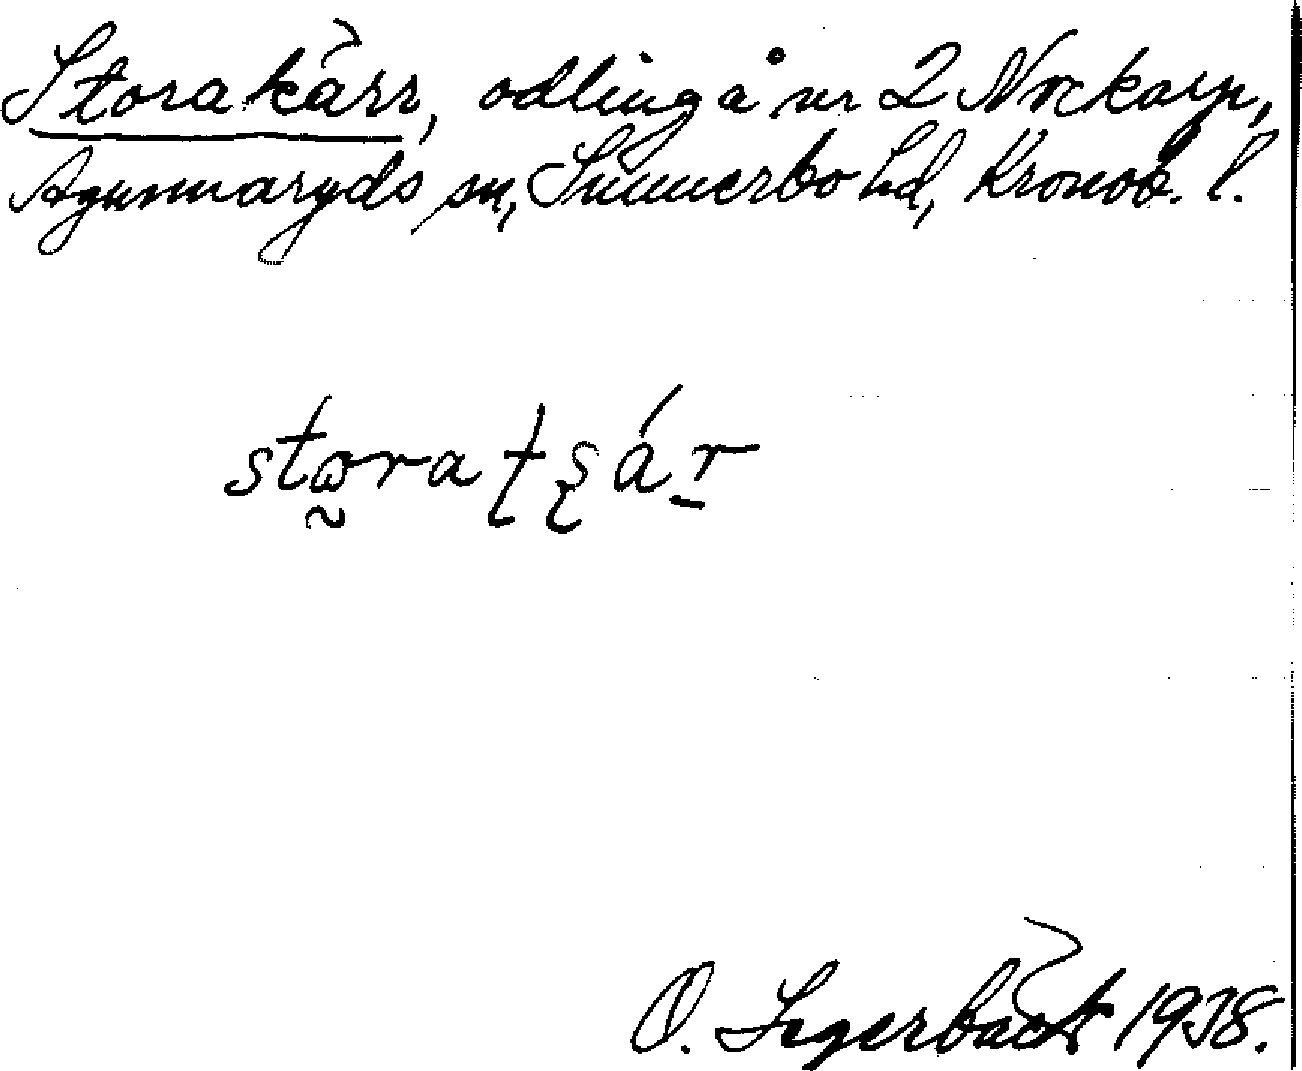 Storakärr, odling å nr 2 Nockarp,
Agunnaryds sn, Sunnerbo hd, Kronob. l.
stora tsár
O. Segerbäck 1938.